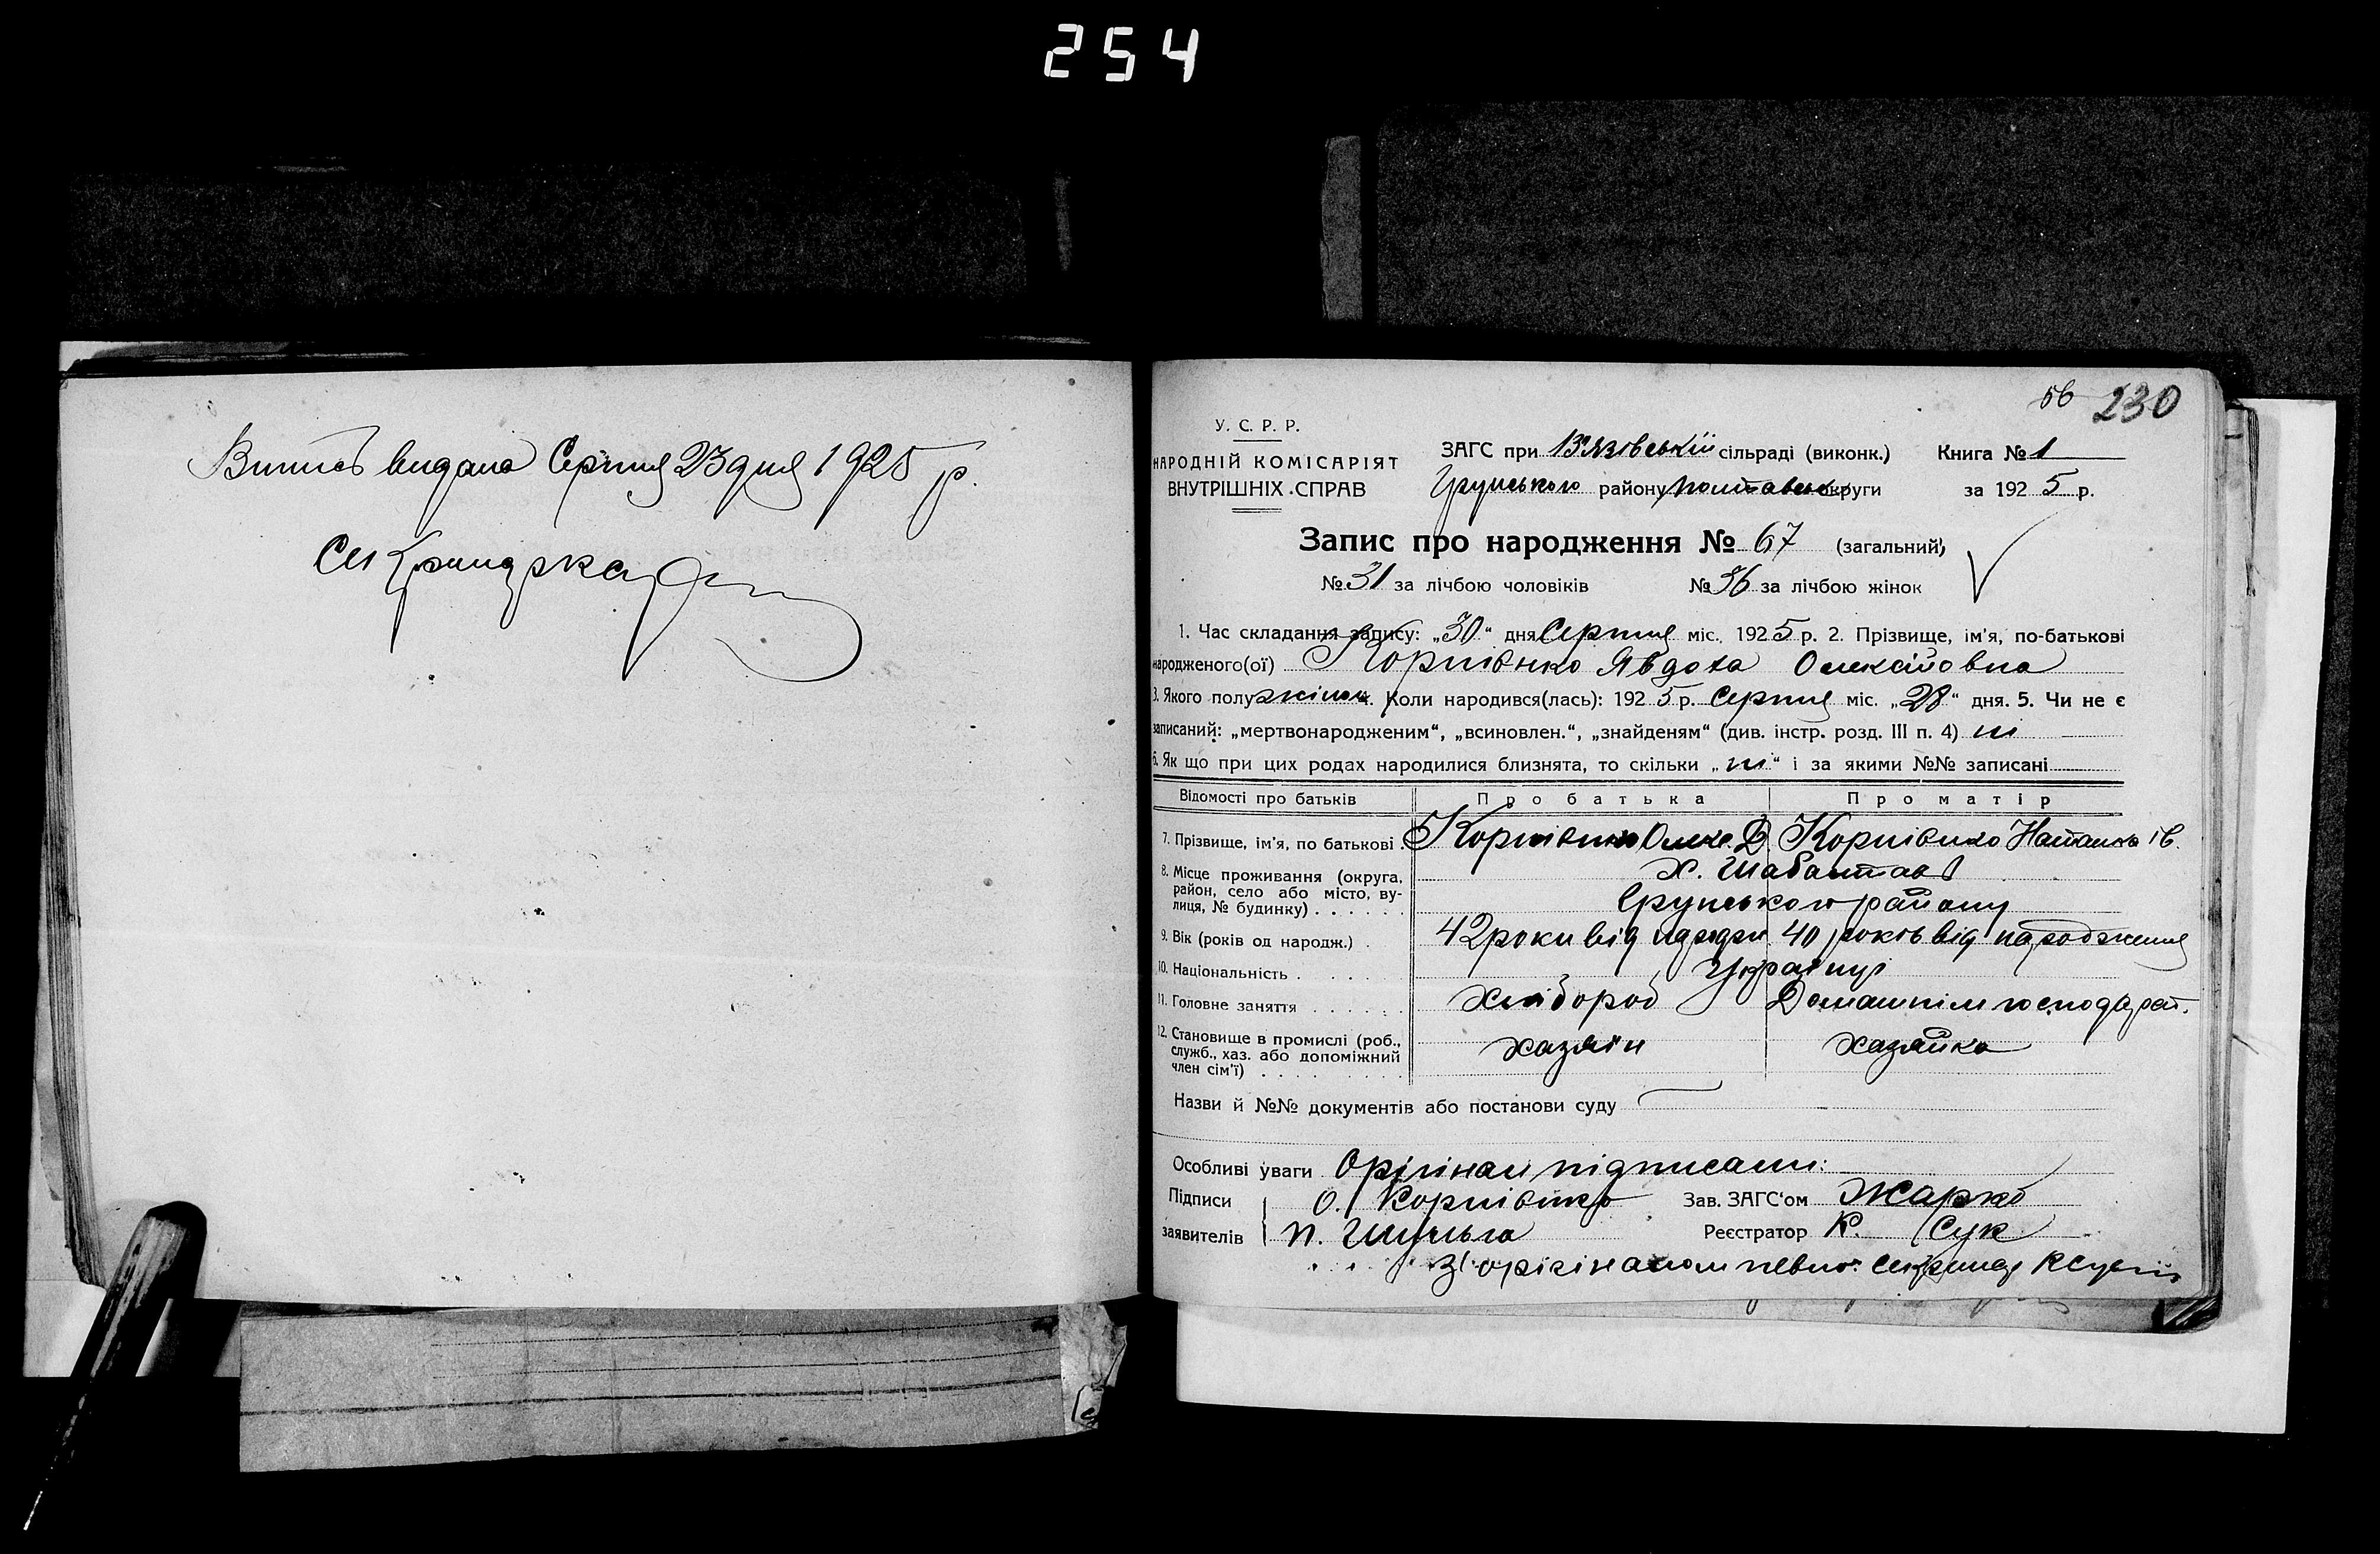 254
Випись видана Серпня 23 дня 1925 р.
56 230
У. С. Р. Р.
НАРОДНІЙ КОМІСАРІЯТ
ВНУТРІШНІХ СПРАВ
ЗАГС при В'язовській сільраді (виконк.) Книга № 1
Грунського району Полтавськ округи за 1925 р.
Запис про народження № 67 (загальний)
№ 31 за лічбою чоловіків № 36 за лічбою жінок
1. Час складання запису: „30" дня Серпня міс. 1925 р. 2. Прізвище, ім'я, по-батькові
народженого(ої) Корнієнко Явдоха Олексіїовна
3. Якого полу жіноч. Коли народився(лась): 1925 р. Серпня міс. „28" дня. 5. Чи не є
записаний: „мертвонародженим", „всиновлен.", „знайденям" (див. інстр. розд. III п. 4) ні
6. Як що при цих родах народилися близнята, то скільки „ні" і за якими №№ записані
Відомості про батьків Про батька Про матір
7. Прізвище, ім'я, по батькові . Корнієнко Олекс. Д. Корнієнко Наталка Ів.
8. Місце проживання (округа, район, село або місто, вулиця, № будинку) . . . . . . х. Шабалтаєв
Грунського району
9. Вік (років од народж.) . 42 роки від народжн. 40 років від народження
10. Національність . . . . Українці
11. Головне заняття . . . . . . Хлібороб Домашнім господарст.
12. Становище в промислі (роб., служб., хаз. або допоміжний член сім'ї) . . . . . . . . . хазяїн хазяйка
Назви й №№ документів або постанови суду
Особливі уваги Орігінал підписали:
Підписи О. Корнієнко Зав. ЗАГС'ом Жарко
заявителів П. Шульга Реєстратор К. Сук
З орігіналом певно: